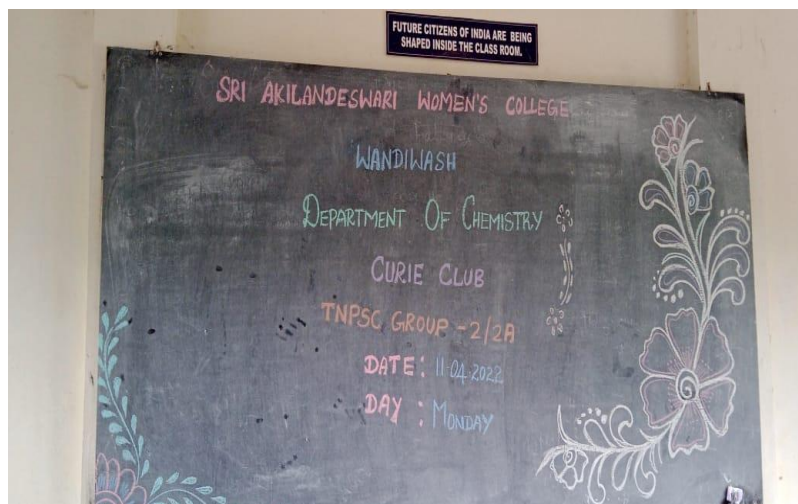 FUTURE CITIZENS OF INDIA ARE BEING
SHAPED INSIDE THE CLASS ROOM.
SRI AKILANDESWARI WOMEN'S COLLEGE
WANDIWASH
DEPARTMENT OF CHEMISTRY
CURIE CLUB
TNPSC GROUP - 2/2A
DATE: 11-04-2022
DAY: MONDAY